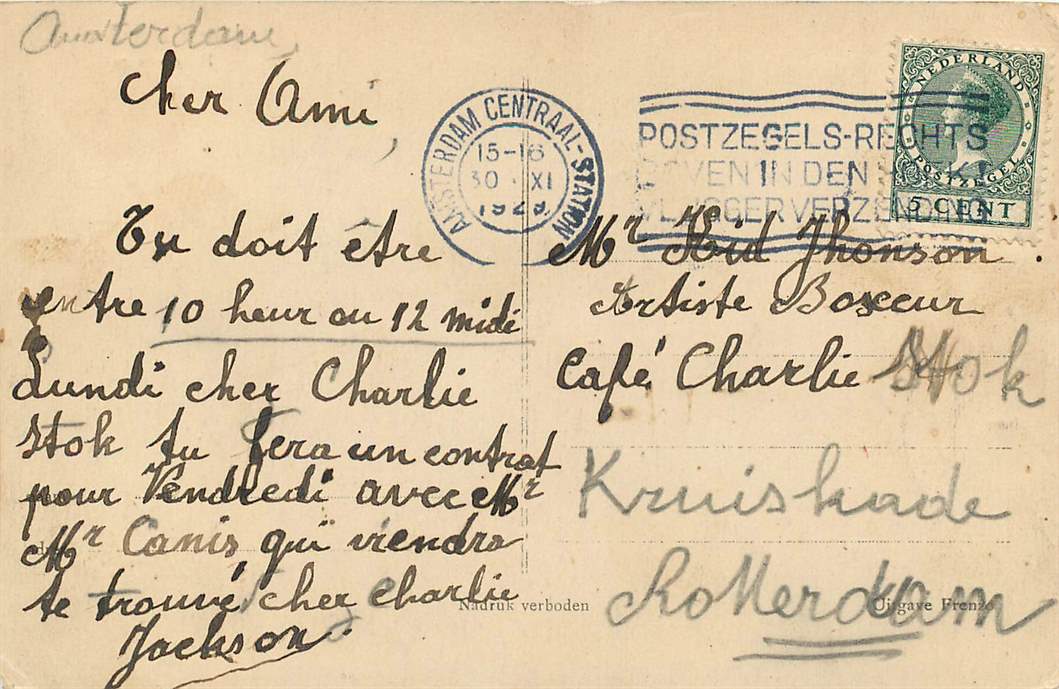 Amsterdam,
Cher Ami,
AMSTERDAM CENTRAAL-STATION
15-16
30 XI
POSTZEGELS-RECHTS
BOVEN IN DEN HOEK!
VLUGGER VERZENDING
NEDERLAND
POSTZEGEL
5 CENT
Tu doit être
entre 10 heur ou 12 midi
Lundi cher Charlie
Stok tu fera un contrat
pour Vendredi avec Mr
Mr Canis qui viendra
te trouvé cher Charlie
Jackson.
Mr Kid Jhonson.
Artiste Boxeur
Café Charlie Stok
Kruiskade
Rotterdam
Nadruk verboden
Uitgave Frenzo